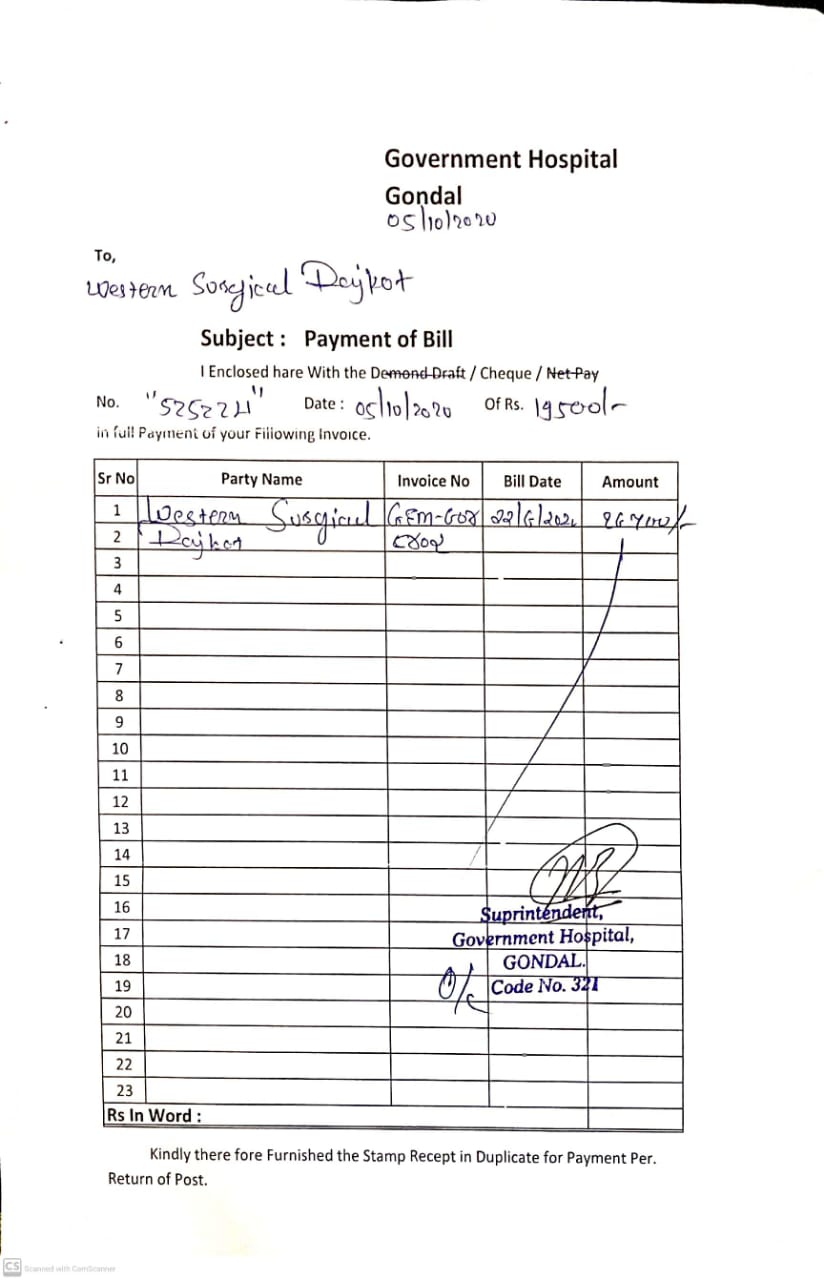 Government Hospital
Gondal
05/10/2020
To,
Western Surgical Rajkot
Subject : Payment of Bill
I Enclosed hare With the Demond Draft / Cheque / Net Pay
No. "525224" Date : 05/10/2020 Of Rs. 19500/-
in full Payment of your Fillowing Invoice.
Sr No Party Name Invoice No Bill Date Amount
1 Western Surgical GEM-
2 Rajkot
3
4
5
6
7
8
9
10
11
12
13
14
15
16
17
18
19
20
21
22
23
Suprintendent,
Government Hospital,
GONDAL.
Code No. 321
O/c
Rs In Word :
Kindly there fore Furnished the Stamp Recept in Duplicate for Payment Per.
Return of Post.
CS Scanned with CamScanner